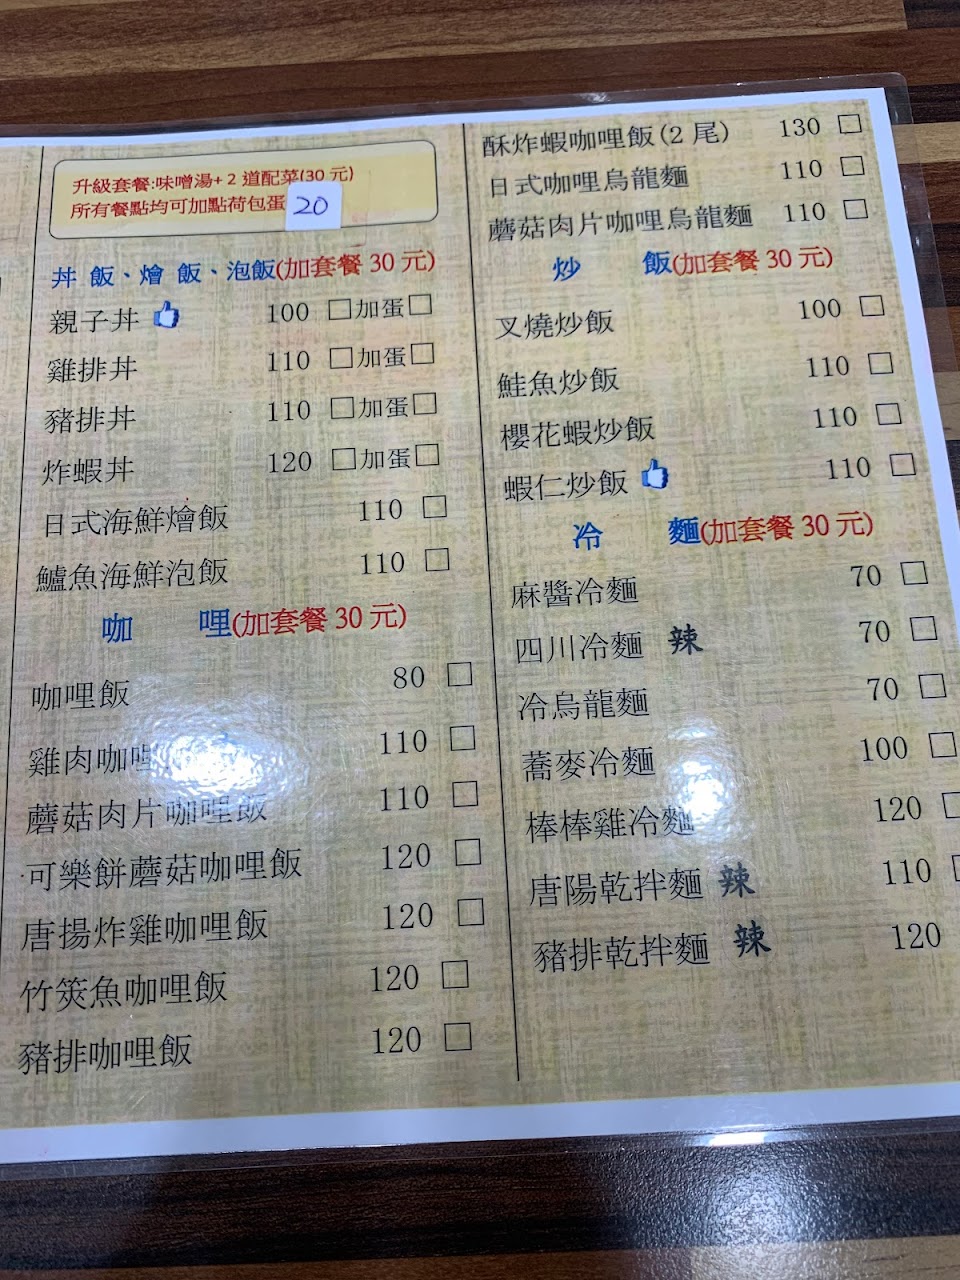 升級套餐:味噌湯+2道配菜(30元)
所有餐點均可加點荷包蛋 20
丼 飯、燴 飯、泡飯(加套餐30元)
親子丼 100 □加蛋□
雞排丼 110 □加蛋□
豬排丼 110 □加蛋□
炸蝦丼 120 □加蛋□
日式海鮮燴飯 110 □
鱸魚海鮮泡飯 110 □
咖 哩(加套餐30元)
咖哩飯 80 □
雞肉咖哩 110 □
蘑菇肉片咖哩飯 110 □
可樂餅蘑菇咖哩飯 120 □
唐揚炸雞咖哩飯 120 □
竹筴魚咖哩飯 120 □
豬排咖哩飯 120 □
酥炸蝦咖哩飯(2尾) 130 □
日式咖哩烏龍麵 110 □
蘑菇肉片咖哩烏龍麵 110 □
炒 飯(加套餐30元)
叉燒炒飯 100 □
鮭魚炒飯 110 □
櫻花蝦炒飯 110 □
蝦仁炒飯 110 □
冷 麵(加套餐30元)
麻醬冷麵 70 □
四川冷麵 辣 70 □
冷烏龍麵 70 □
蕎麥冷麵 100 □
棒棒雞冷麵 120 □
唐陽乾拌麵 辣 110 □
豬排乾拌麵 辣 120